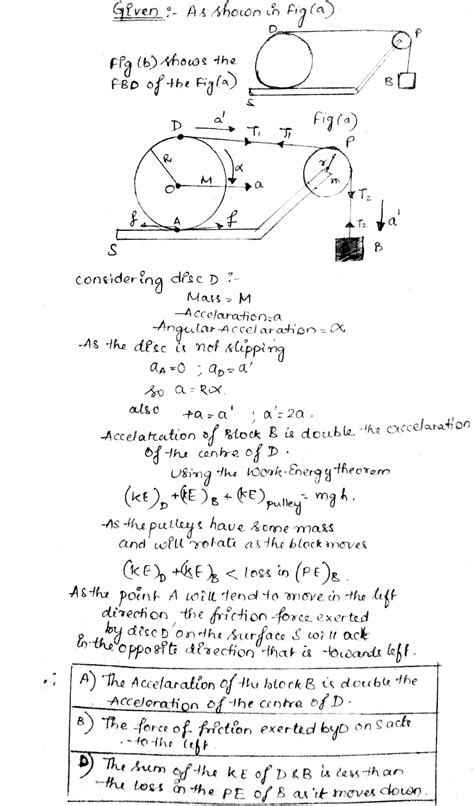 Given :- As shown in Fig(a)
D
P
Fig(b) shows the
FBD of the Fig(a)
B
S
Fig(a)
D
a'
T₁
T₁
P
R
α
r
O
M
a
m
T₂
f
A
f
T₂
a'
S
B
considering disc D :-
Mass = M
Accelaration = a
Angular Accelaration = α
As the disc is not slipping
aA = 0 ; aD = a'
so a = Rα.
also ; a' = 2a.
Accelaration of Block B is double the accelaration
of the centre of D.
Using the Work-Energy theorem
(KE)D + (KE)B + (KE)pulley = mgh.
As the pulleys have some mass
and will rotate as the block moves
(KE)D + (KE)B < loss in (PE)B.
As the point A will tend to move in the left
direction, the friction force exerted
by disc D on the surface S will act
in the opposite direction that is towards left.
∴
A) The Accelaration of the block B is double the
Accelaration of the centre of D.
B) The force of friction exerted by D on S acts
to the left
D) The sum of the KE of D & B is less than
the loss in the PE of B as it moves down.